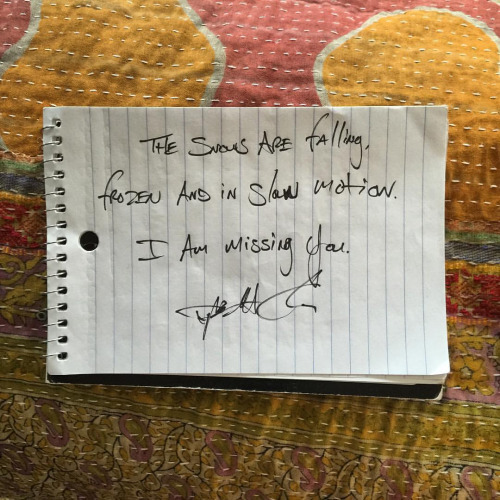 The Snows Are falling,
frozen And in Slow motion.
I Am missing you.